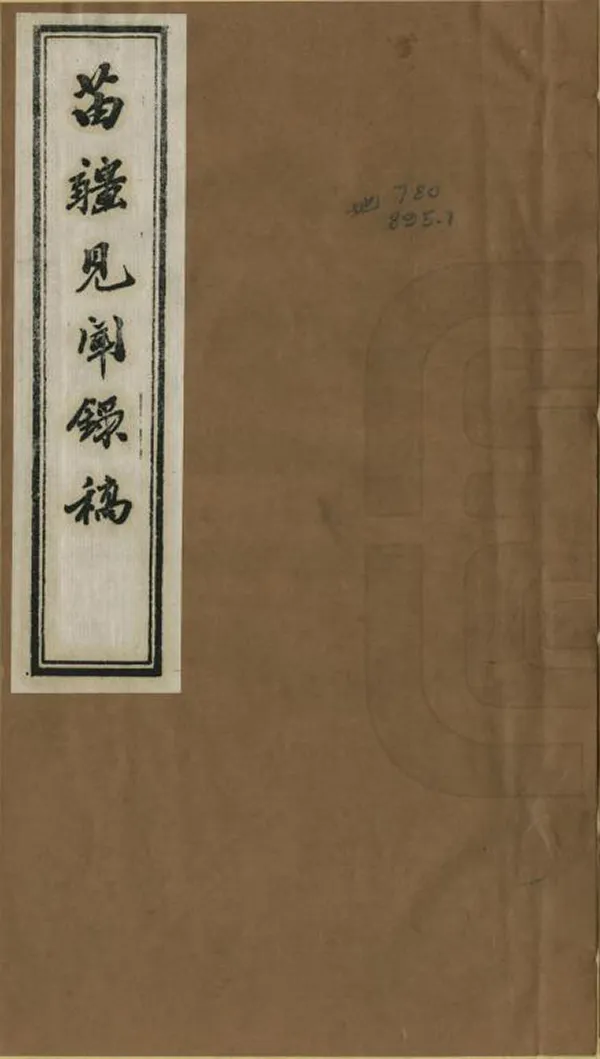 苗疆見聞錄稿
地 780
895.1